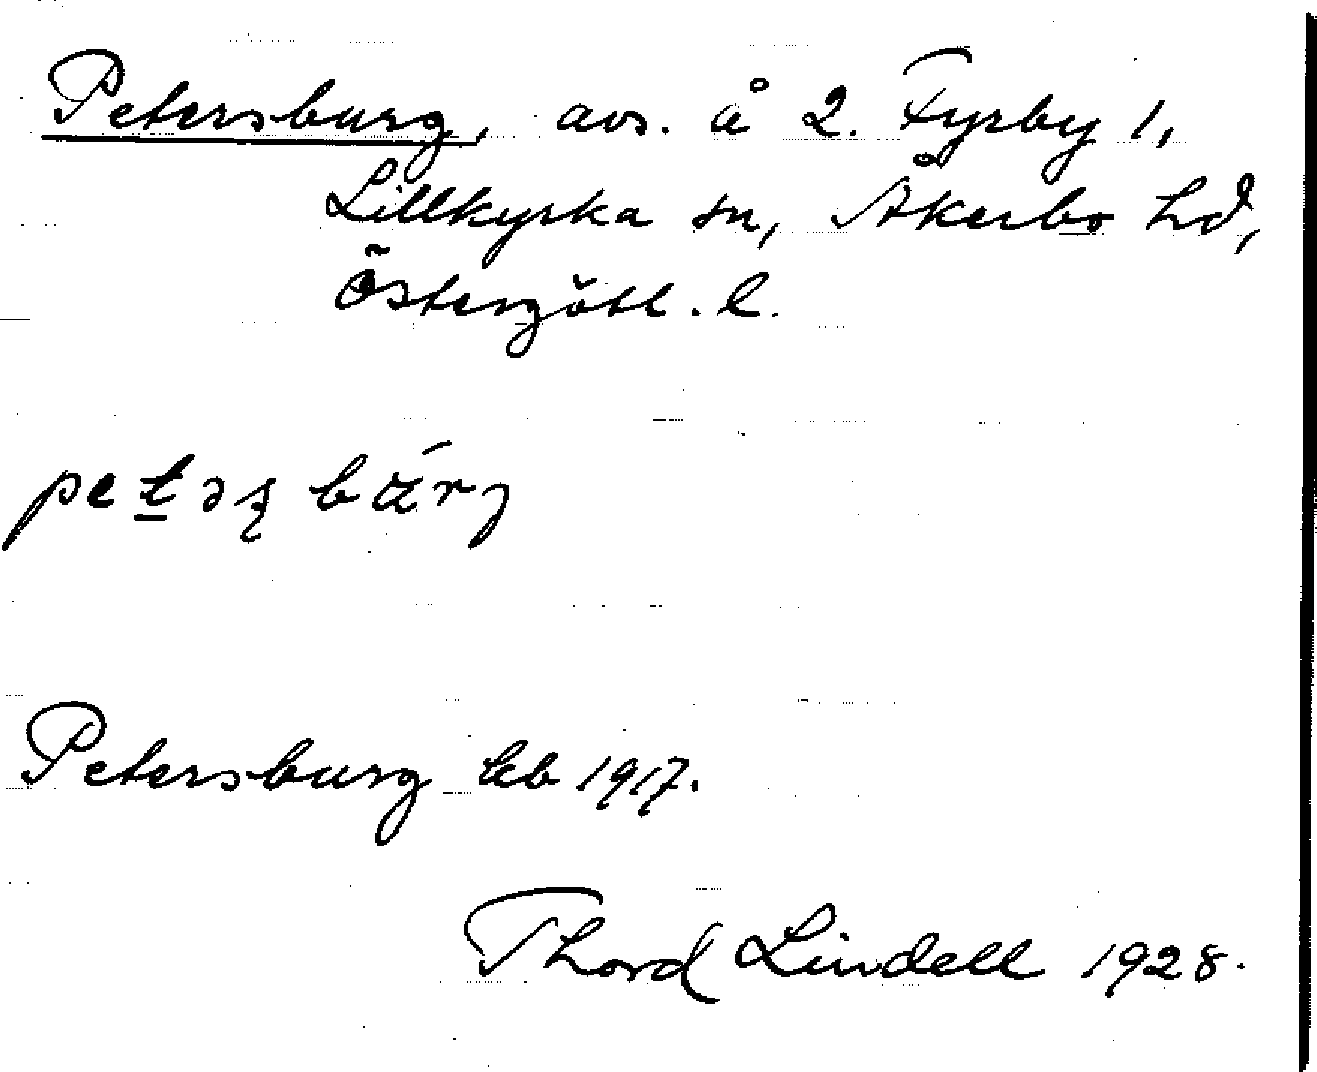 Petersburg, avs. å 2. Fyrby 1,
Lillkyrka sn, Åkerbo hd,
Östergötl. l.
petəʂbærj
Petersburg kb 1917.
Thord Lindell 1928.